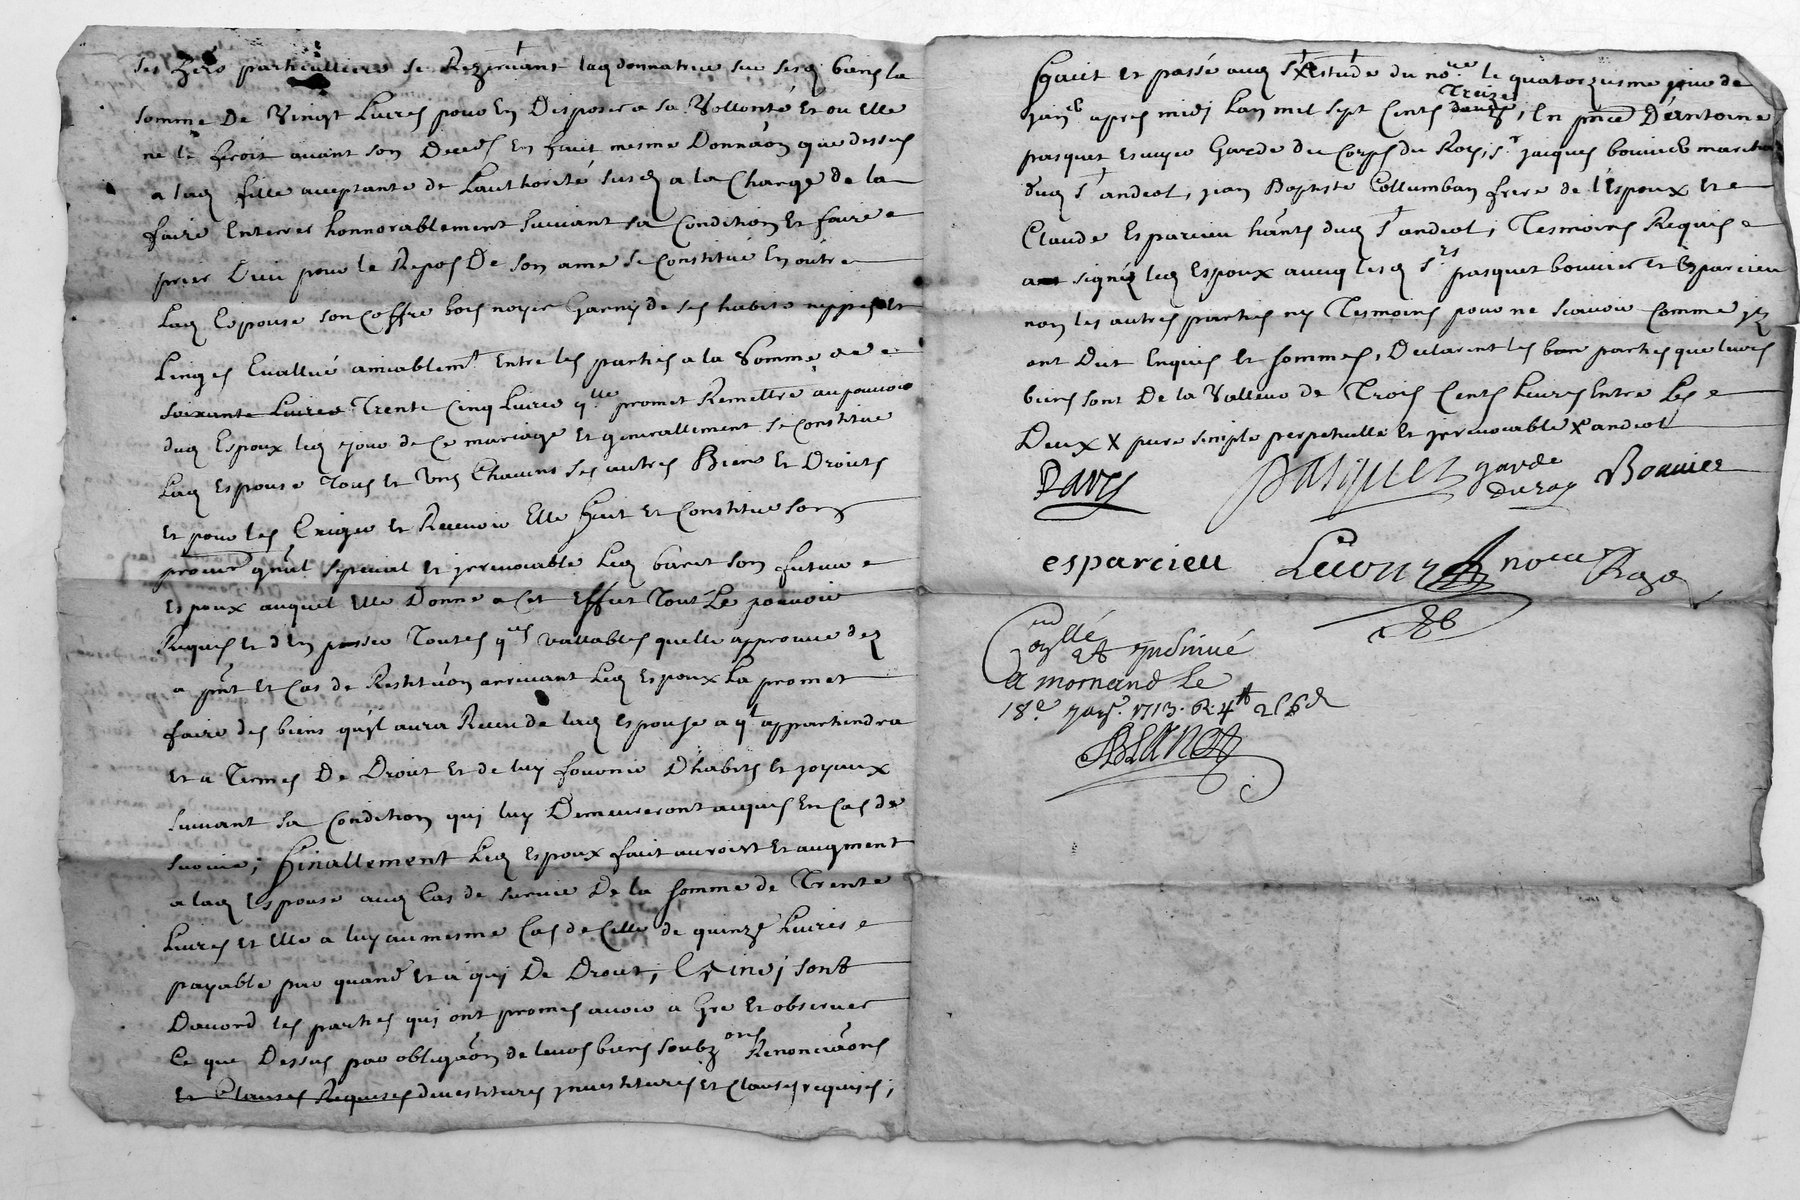 particulliers se Rezervant laq donnatrice sur sesq biens la
somme De Vingt Livres pour En Disposer a sa Vollonté Et ou Elle
ne le feroit avant son Deceds En fait mesme Donnâon que dessus
a laq fille acceptante de Lauthorité susq a la Charge de la
faire Enterrer honnorablement suivant sa Condition Et faire
prier Dieu pour le Repos De son ame Se Constitue En outre
Laq Espouse son Coffre bois noyer Garny de ses habits nippes Et
Linges Evallué amiablemt Entre les parties a la Somme de
soixante Livres Trente Cinq Livres qlle promet Remettre au pouvoir
duq Espoux leq jour de Ce mariage Et generallement se Constitue
Laq Espouse Tous Et Uns Chacuns ses autres Biens Et Droits
Et pour les Exiger Et Recevoir Elle fait Et Constitue son
procur gnâl special Et jrrevocable Leq baret son futur
Espoux auquel Elle Donne a Cet Effet Tout Le pouvoir
Requis Et d'En passer Toutes qces vallables quelle approuve dez
a pnt Et Cas de Restitûon arrivant Leq Espoux La promet
faire des biens qu'jl aura Receu de laq Espouse a qt appartiendra
Et a Termes De Droit Et de luy fournir D'habits Et joyaux
suivant sa Condition quj luy Demeureront acquis En Cas de
survie; Finallement Leq Espoux fait auroist Et augment
a laq Espouse auq Cas de survie De la somme de Trente
Livres Et Elle a luy au mesme Cas de Celle de quinze Livres
payable par quand Et a quj De Droit; Et Ainsj sont
Davord les parties quj ont promis avoir a Gré Et observer
Ce que Dessus par obligâon de leurs biens soubzons Renonciâons
Et Clauses Requises devestitures jnvestitures Et Clauses requises;
Fait Et passé auq St Estude du nore le quatorzieme jour de
janer apres midj Lan mil sept Cents douze Treize, En pnce D'Antoine
pasquet Escuyer Garde du Corps du Roy, Sr jacques bouvier marchand
duq St andeol, jean Baptiste Collumban frere de l'Espoux Et
Claude Esparcieu hânts duq St andeol, Tesmoins Requis
signéz leq Espoux avecq lesq Srs pasquet bouvier Et Esparcieu
non les autres parties ny Tesmoins pour ne scavoir Comme jlz
ont Dit Enquis Et sommés, Declarent les parties que leurs
biens sont De la Valleur de Trois Cents Livres Entre Les
Deux X pure simple perpetuelle Et jrrevocable X andeol
Davy Pasquet garde du roy Bouvier
esparcieu nore Royal
Conllé Et jnsinué
a mornand Le
18e janr. 1713. R. 4lt